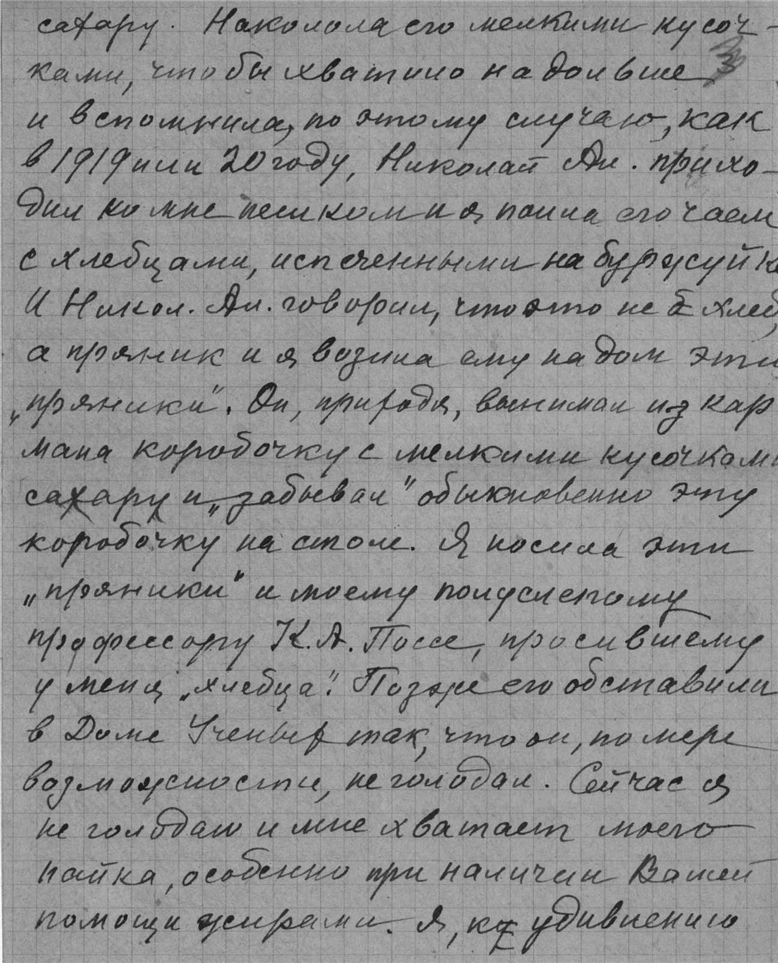 сахару. Наколола его мелкими кусоч-
ками, чтобы хватило на дольше
и вспомнила, по этому случаю, как
в 1919 или 20 году, Николай Ал. прихо-
дил ко мне пешком и я поила его чаем
с хлебцами, испеченными на буржуйк
И Никол. Ал. говорил, что это не хлеб,
а пряник и я возила ему на дом эти
„пряники". Он, приходя, вынимал из кар
мана коробочку с мелкими кусочками
сахару и „забывал" обыкновенно эту
коробочку на столе. Я носила эти
„пряники" и моему полуслепому
профессору К.А. Поссе, просившему
у меня „хлебца". Позже его обставили
в Доме Ученых так, что он, по мере
возможности, не голодал. Сейчас я
не голодаю и мне хватает моего
пайка, особенно при наличии Вашей
помощи жирами. Я, к удивлению